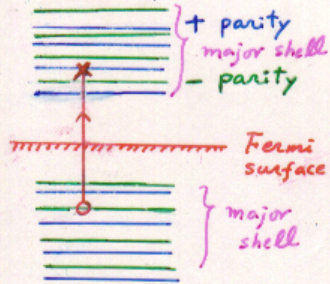 + parity
major shell
- parity
Fermi
surface
major
shell